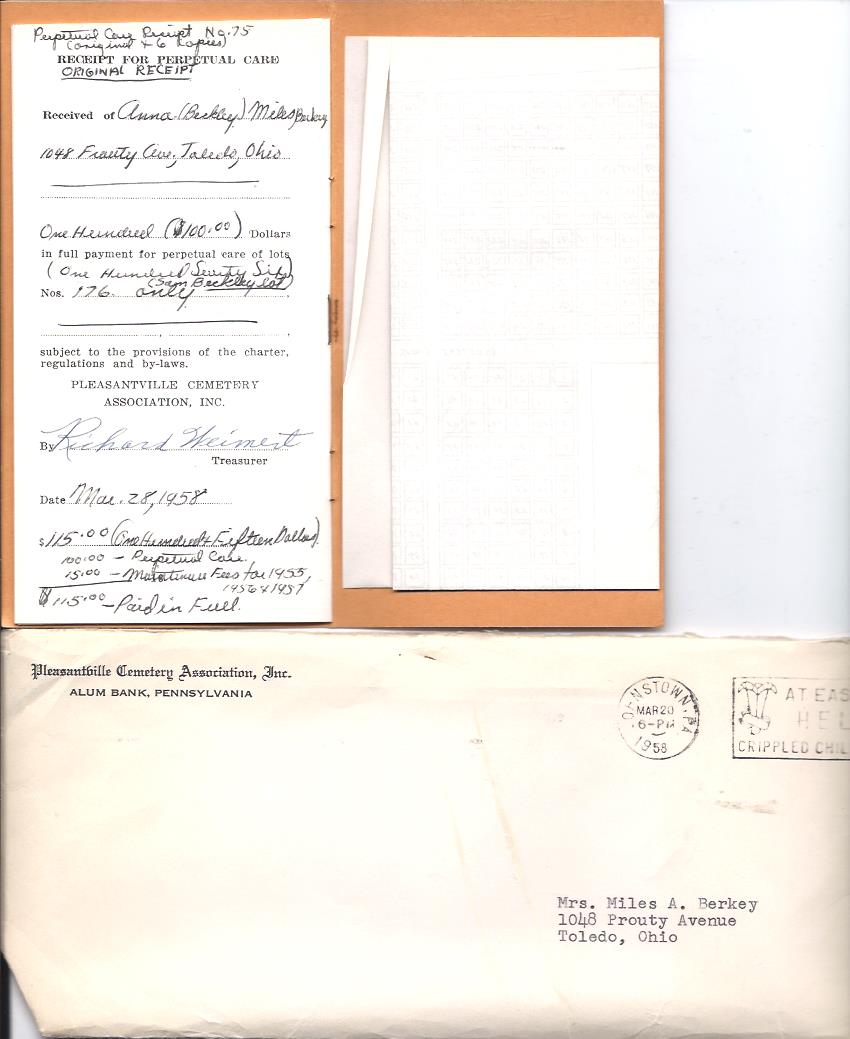 Perpetual Care Receipt No. 75
(original & 6 Copies)
RECEIPT FOR PERPETUAL CARE
ORIGINAL RECEIPT
Received of Anna (Beckley) Miles Berkey
1048 Prouty Ave, Toledo, Ohio
One Hundred ($100.00) Dollars
in full payment for perpetual care of lots
(One Hundred Seventy Six)
(Sam Beckley lot)
Nos. 176 only
subject to the provisions of the charter,
regulations and by-laws.
PLEASANTVILLE CEMETERY
ASSOCIATION, INC.
By Richard Weimert
Treasurer
Date Mar. 28, 1958
$115.00 (One Hundred & Fifteen Dollars)
100.00 - Perpetual Care
15.00 - Maintenance Fees for 1955,
1956 & 1957
$115.00 - Paid in Full.
Pleasantville Cemetery Association, Inc.
ALUM BANK, PENNSYLVANIA
JOHNSTOWN, PA
MAR 20
6-PM
1958
AT EAS
HEL
CRIPPLED CHIL
Mrs. Miles A. Berkey
1048 Prouty Avenue
Toledo, Ohio